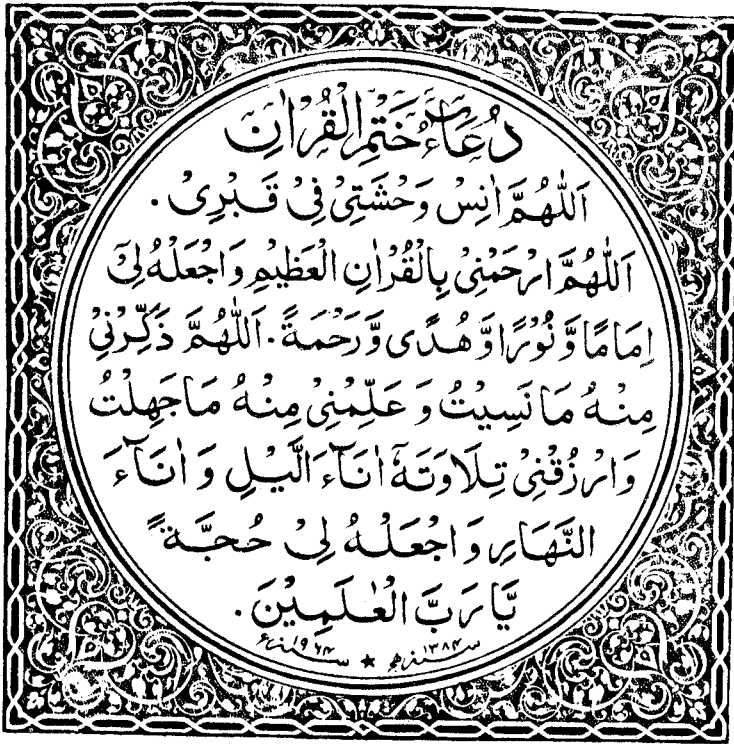 دُعَاءُ خَتْمِ الْقُرْاٰنِ
اَللّٰهُمَّ اٰنِسْ وَحْشَتِیْ فِیْ قَبْرِیْ.
اَللّٰهُمَّ ارْحَمْنِیْ بِالْقُرْاٰنِ الْعَظِیْمِ وَاجْعَلْهُ لِیْٓ
اِمَامًا وَّ نُوْرًا وَّ هُدًی وَّ رَحْمَةً. اَللّٰهُمَّ ذَکِّرْنِیْ
مِنْهُ مَا نَسِیْتُ وَ عَلِّمْنِیْ مِنْهُ مَا جَهِلْتُ
وَارْزُقْنِیْ تِلَاوَتَهٗٓ اٰنَآءَ الَّیْلِ وَ اٰنَآءَ
النَّهَارِ وَاجْعَلْهُ لِیْ حُجَّةً
یَّا رَبَّ الْعٰلَمِیْنَ.
سنہ ۱۳۸۴ھ ★ سنہ ۱۹۶۴ء